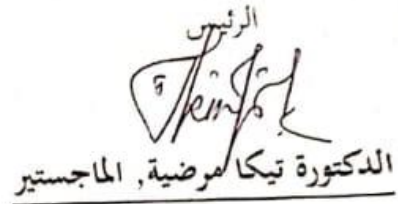 الرئيس
الدكتورة تيكا مرضية, الماجستير